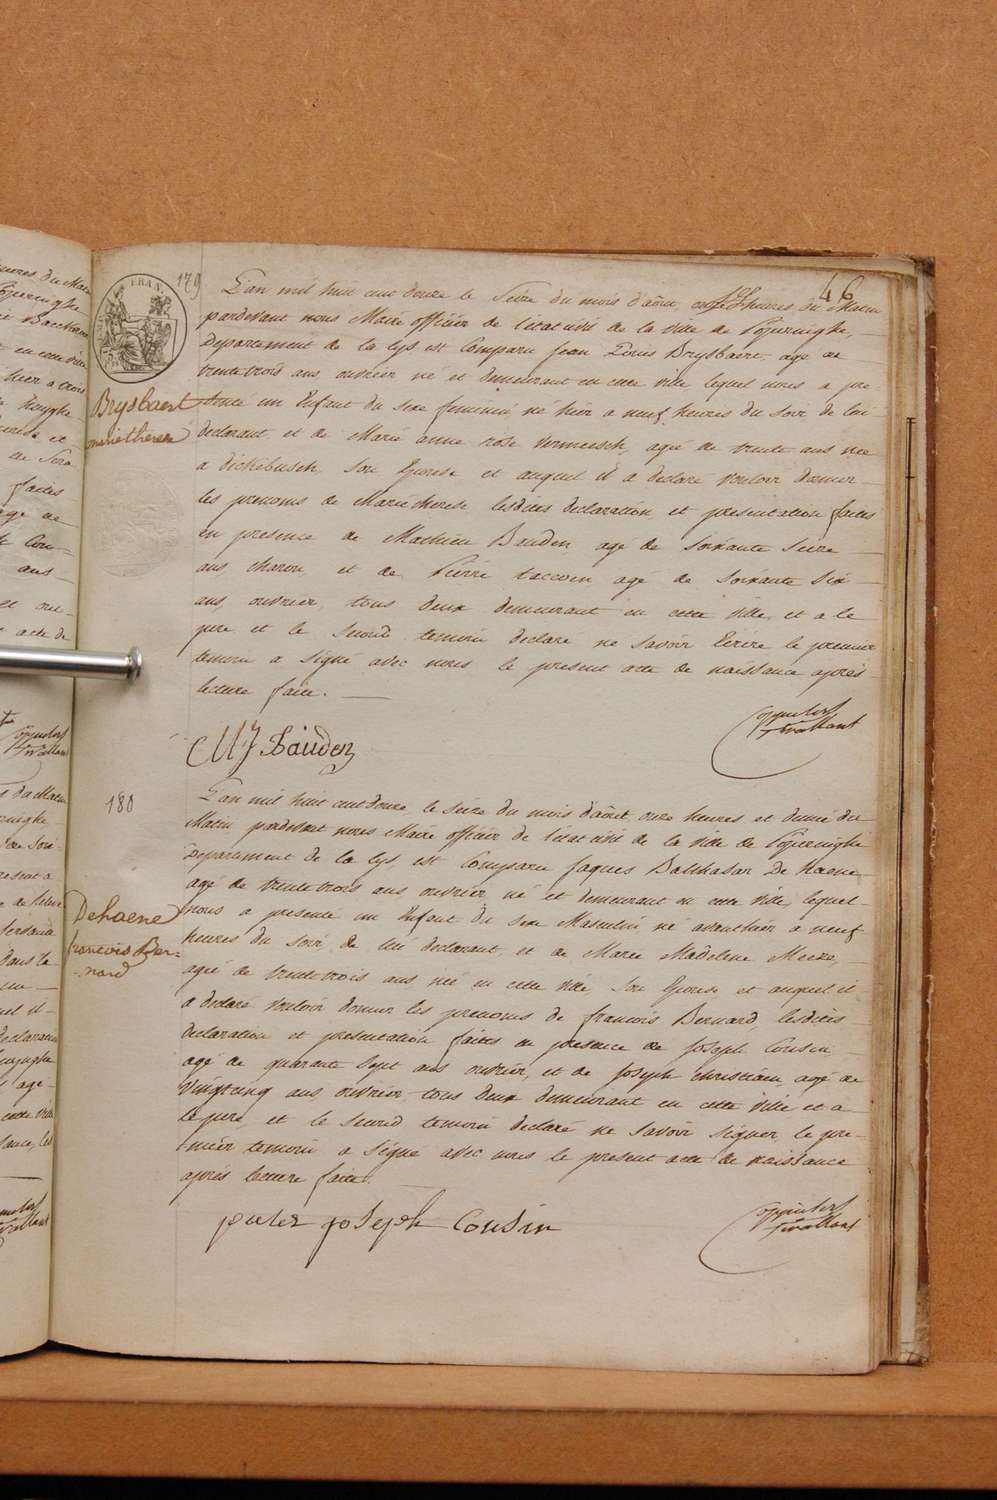 46
179
L'an mil huit cent douze le Seize du mois d'août, onze heures du Matin
pardevant nous Maire officier de l'état civil de la ville de Poperinghe,
Departement de la Lys est Comparu Jean Louis Brysbaert agé de
trente trois ans ouvrier né et demeurant en cette ville lequel nous a pre
Brysbaert
marie therese
-senté un Enfant du sexe feminin né hier a neuf heures du soir de lui
declarant et de Marie anne rose Vermeesch, agée de trente ans née
a dickebusch son Epouse et auquel il a declaré vouloir donner
les prenoms de Marie therese lesdites declaration et presentation faites
en presence de Mathieu Bauden agé de Soixante Seize
ans charon et de Pierre taccoen agé de Soixante Six
ans, ouvrier, tous deux demeurant en cette ville et a le
pere et le second temoin declaré ne savoir Ecrire le premier
temoin a Signé avec nous le present acte de naissance après
lecture faite.
MJ Bauden
180
L'an mil huit cent douze le Seize du mois d'août onze heures et demie du
Matin pardevant nous Maire officier de l'état civil de la ville de Poperinghe
Departement de la Lys, est Comparu Jaques Balthasar De Haene
agé de trente trois ans ouvrier né et demeurant en cette ville, lequel
Dehaene
francois Ber-
-nard
nous a presenté un Enfant du sexe Masculin né avanthier a neuf
heures du soir de lui declarant et de Marie Madelene Meeze,
agée de trente trois ans née en cette ville Son Epouse et auquel il
a declaré vouloir donner les prenoms de francois Bernard, lesdites
declaration et presentation faites en presence de Joseph Cousin
agé de quarant Sept ans ouvrier, et de Joseph Christiaen agé de
Vingtcinq ans ouvrier tous deux demeurant en cette ville et a
le pere, et le second temoin declaré ne savoir signer, le pre-
-mier temoin a Signé avec nous le present acte de naissance
après lecture faite.
joseph Cousin